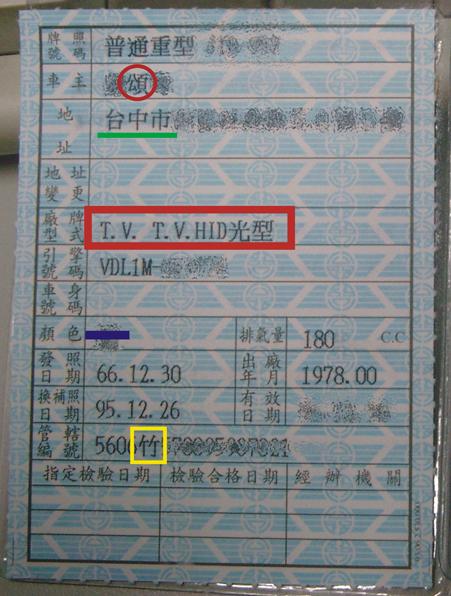 牌照號碼 普通重型
車主 頌
地址 台中市
地址變更
廠牌型式 T.V. T.V.HID光型
引擎號碼 VDL1M-
車身號碼
顏色 排氣量 180 C.C
發照日期 66.12.30 出廠年月 1978.00
換補照日期 95.12.26 有效日期
管轄編號 5606竹
指定檢驗日期 檢驗合格日期 經辦機關